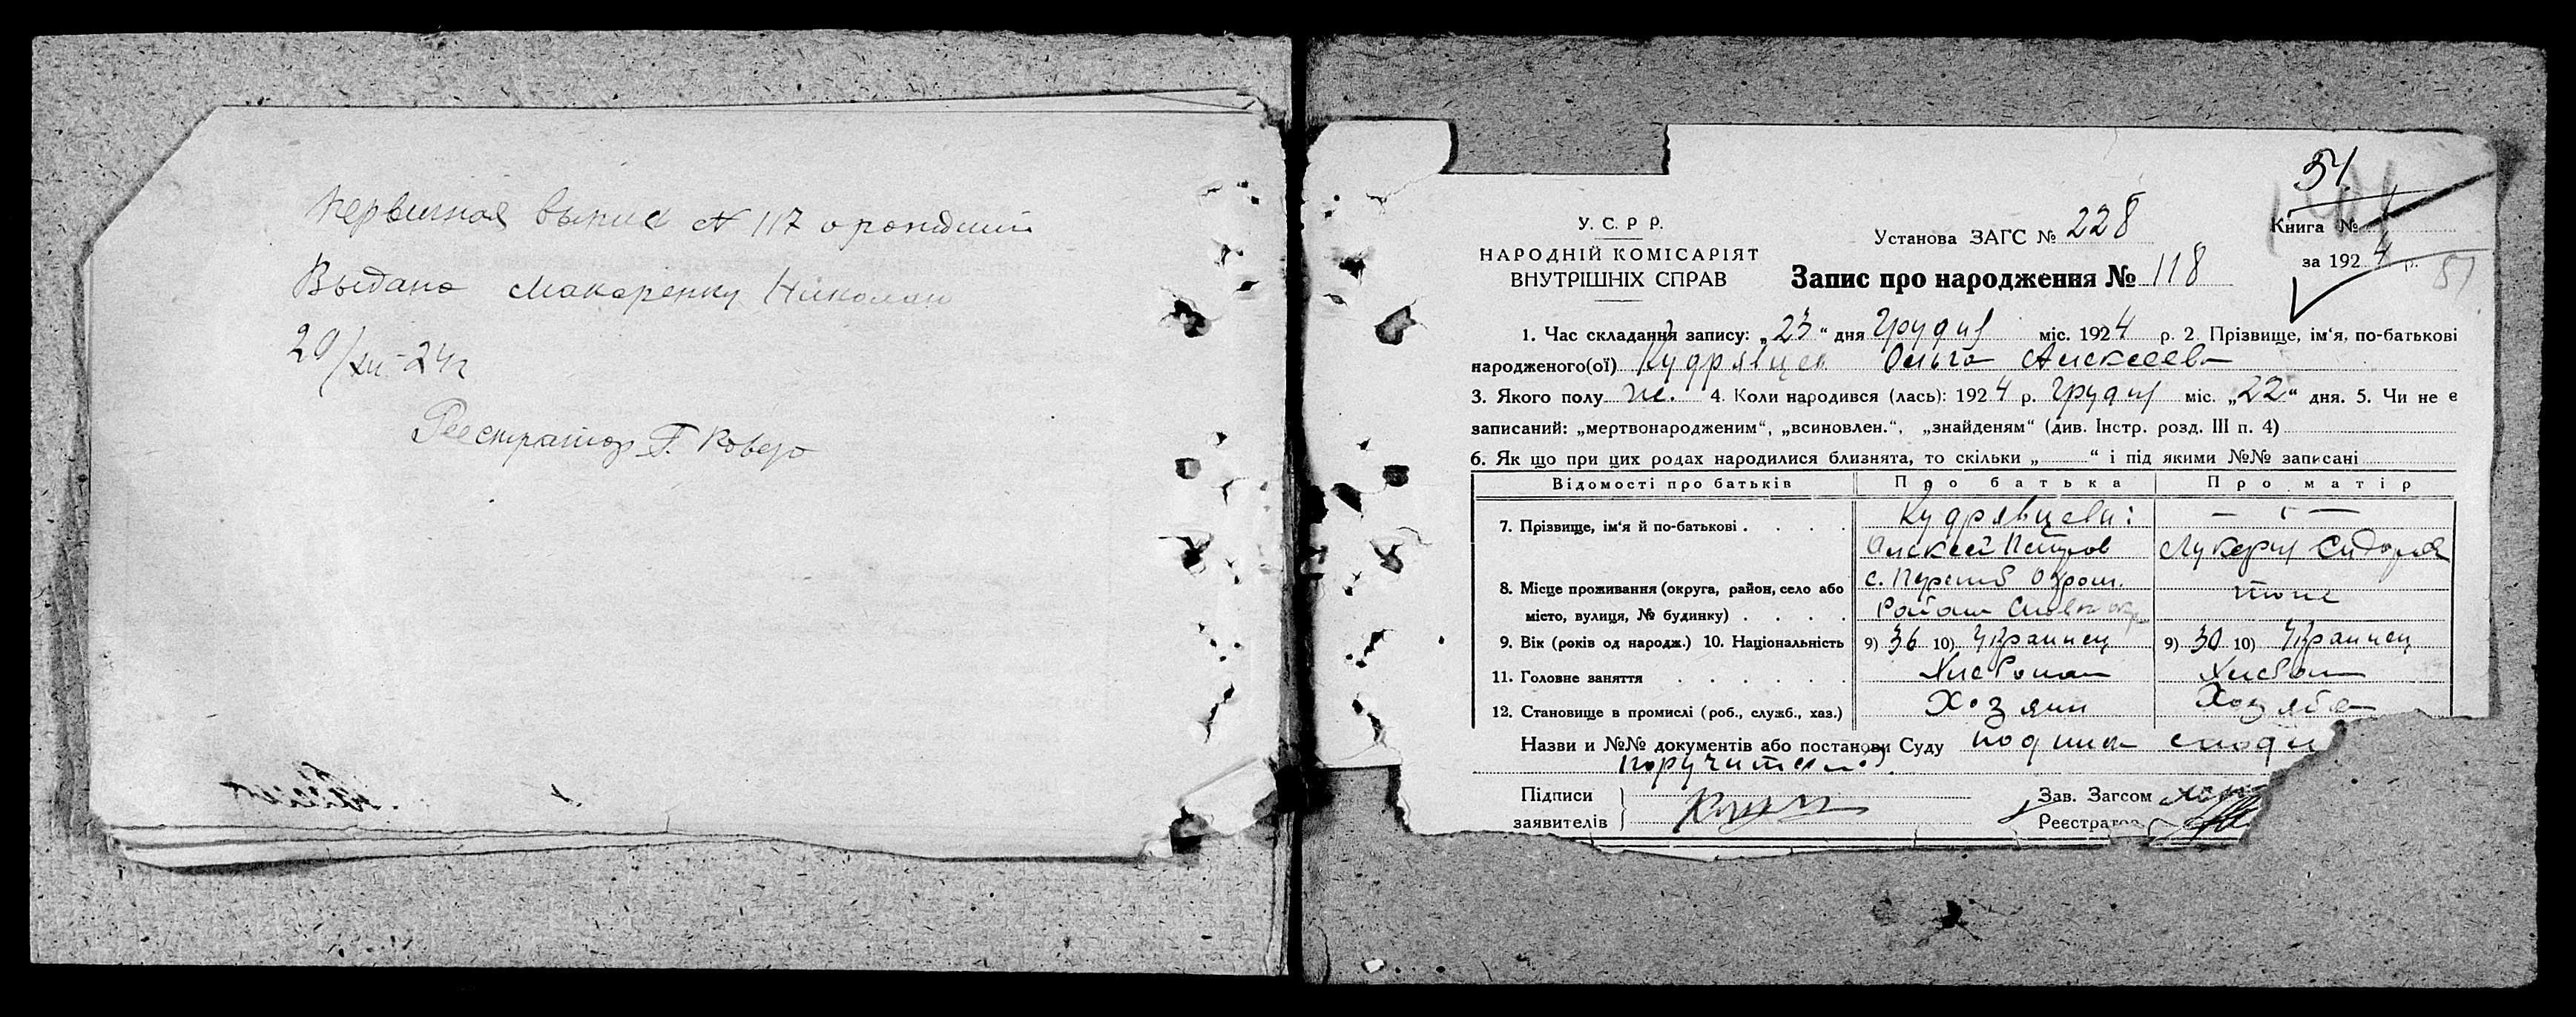 Первичная выпись № 117 о рождении
Выдана Макаренку Николаю
29/XII-24г
Реестратор Г. Коверо
51
У. С. Р. Р.
НАРОДНІЙ КОМІСАРІЯТ
ВНУТРІШНІХ СПРАВ
Установа ЗАГС № 228
Запис про народження № 118
Книга №
за 1924 р.
51
1. Час складання запису: „23“ дня Грудня міс. 1924 р. 2. Прізвище, ім‘я, по-батькові
народженого(ої) Кудрявцев Ольга Алексеева
3. Якого полу ж. 4. Коли народився (лась): 1924 р. Грудня міс. „22“ дня. 5. Чи не є
записаний: „мертвонародженим“, „всиновлен.“, „знайденям“ (див. Інстр. розд. III п. 4)
6. Як що при цих родах народилися близнята, то скільки „ “ і під якими №№ записані
Відомості про батьків Про батька Про матір
7. Прізвище, ім‘я й по-батькові . . . . Кудрявцеви: — „ —
Алексей Петров Лукерия Сидоров
8. Місце проживання (округа, район, село або с.
місто, вулиця, № будинку) . . . . район тоже
9. Вік (років од народж.) 10. Національність 9) 36 10) Украинец 9) 30 10) Украинец
11. Головне заняття . . . . . .
12. Становище в промислі (роб., служб., хаз.) Хозяин Хозяйка
Назви и №№ документів або постанови Суду
поручители
Підписи
заявителів
Зав. Загсом
Реєстратор